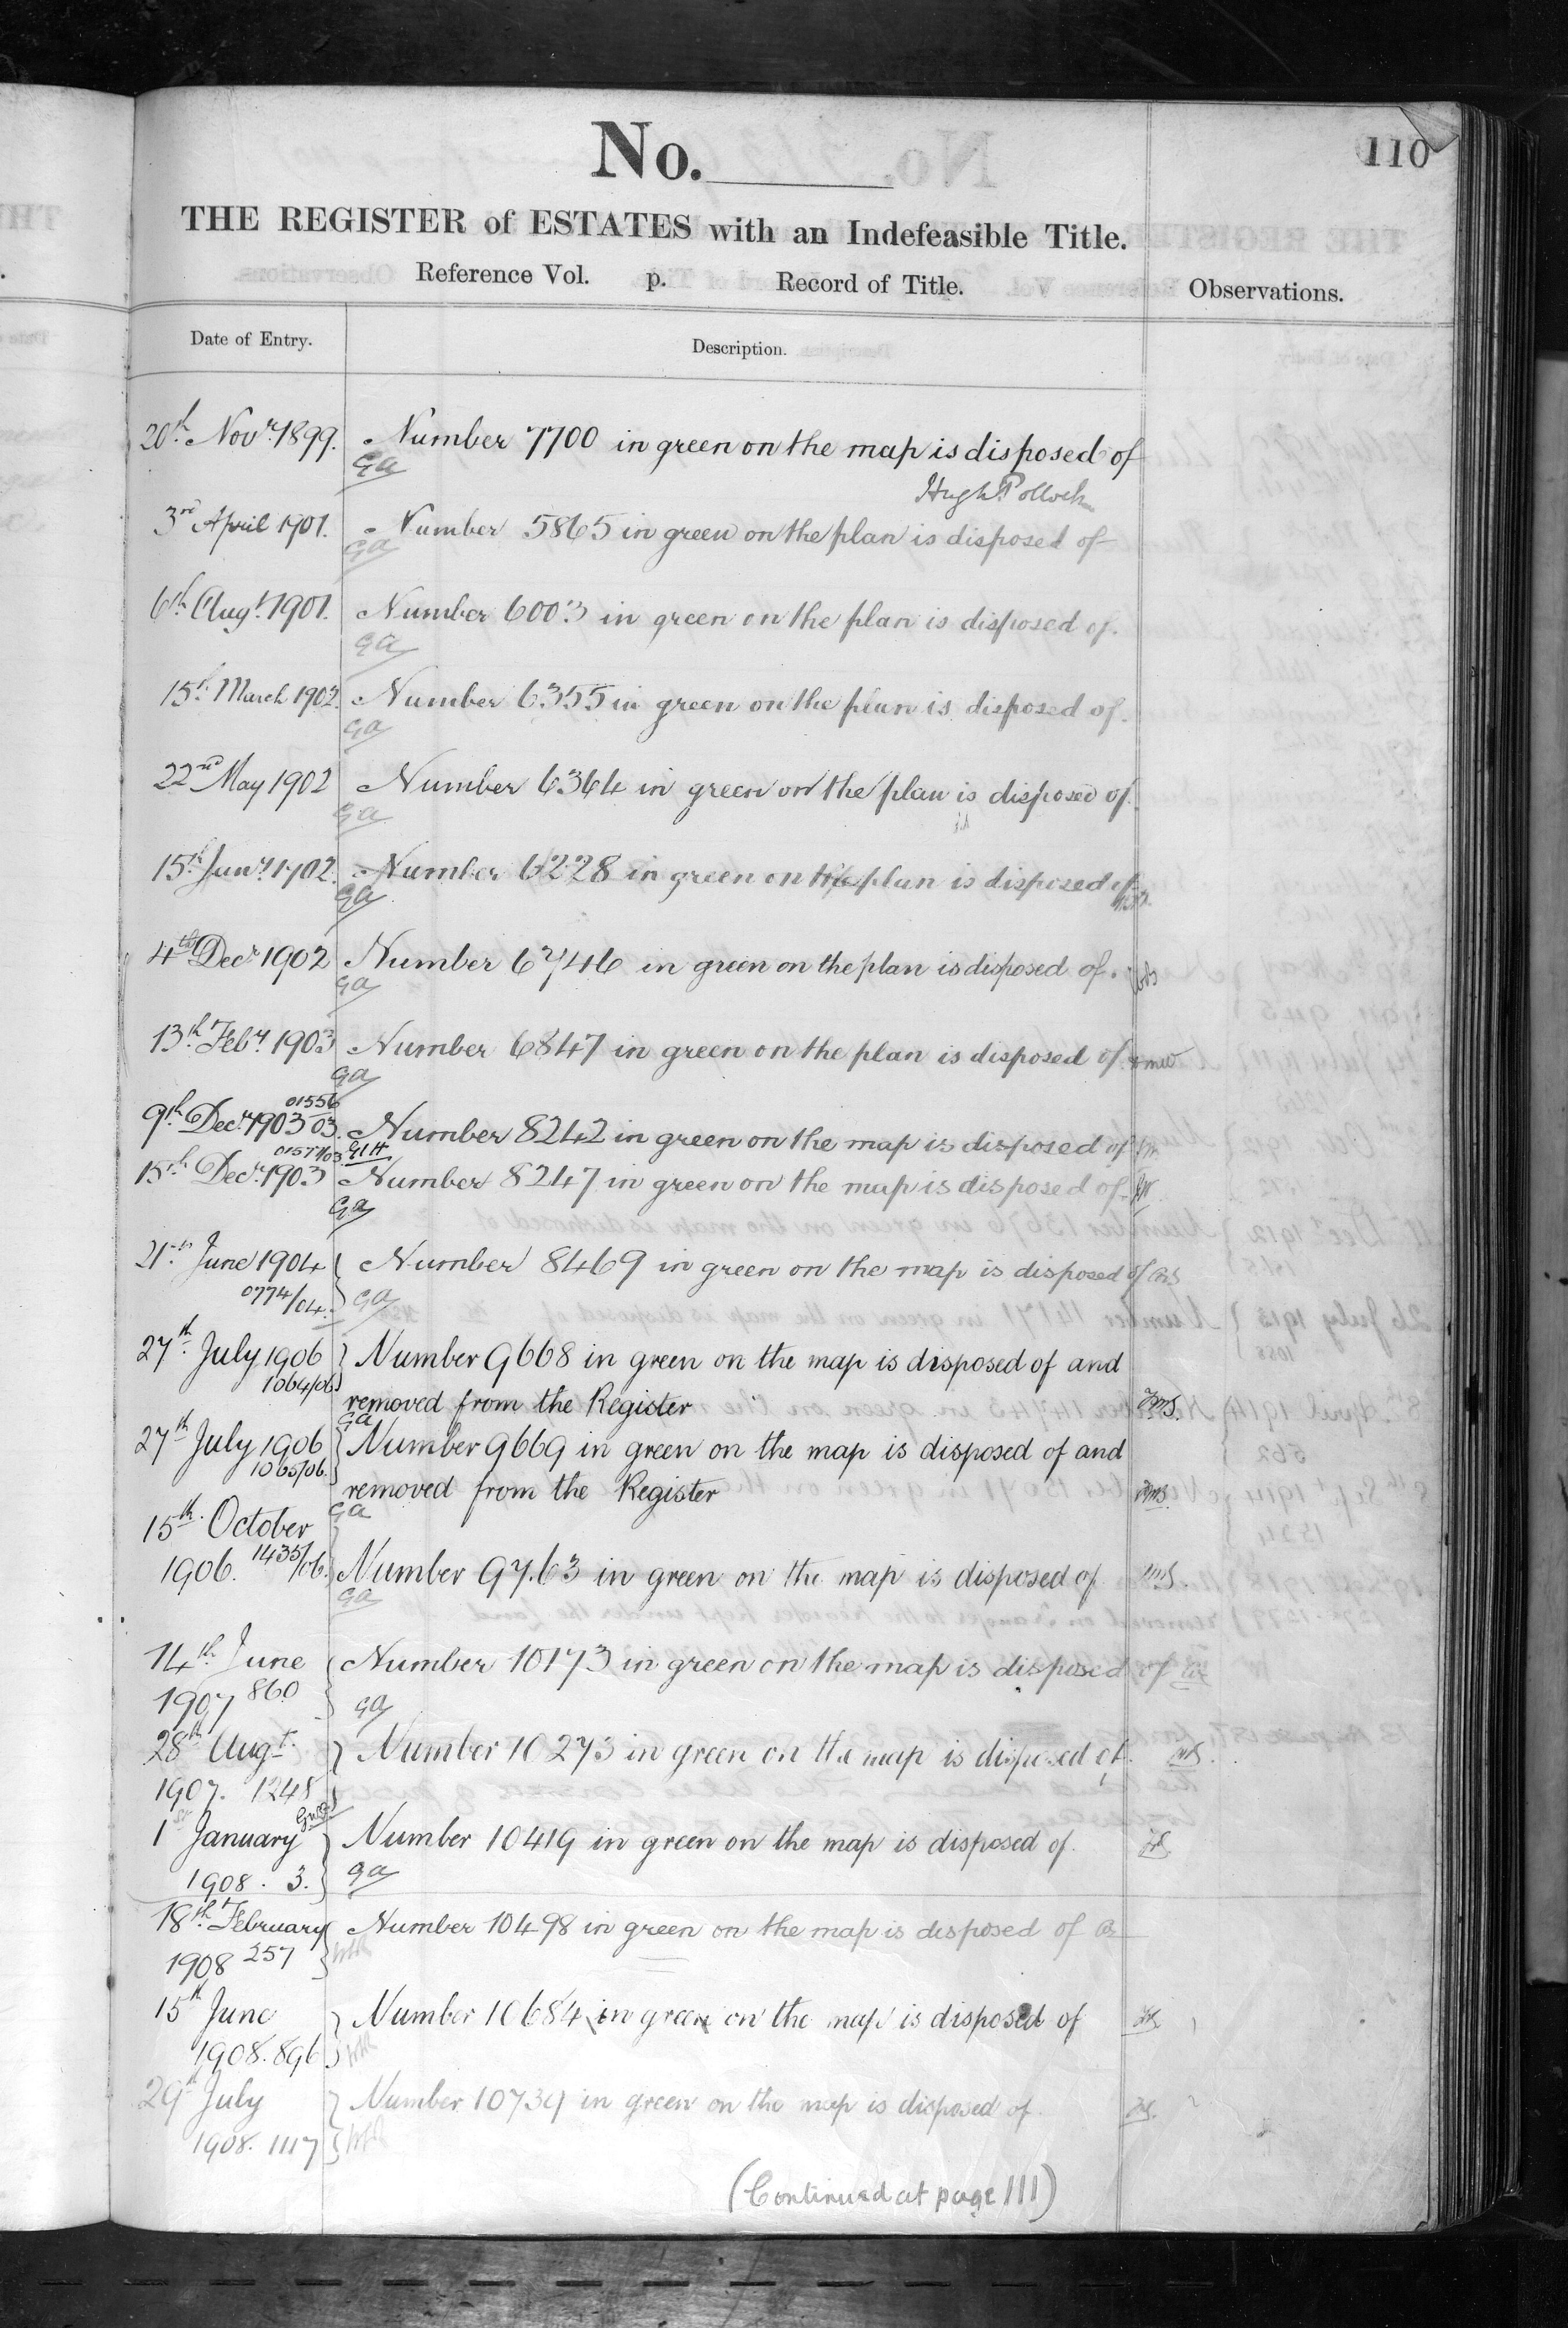 110
No.
THE REGISTER of ESTATES with an Indefeasible Title.
Reference Vol. p. Record of Title.
Observations.
Date of Entry. Description.
20th Novr. 1899. Number 7700 in green on the map is disposed of
GA
Hugh Pollock
3rd April 1901. Number 5865 in green on the plan is disposed of
GA
6th Augt. 1901. Number 6003 in green on the plan is disposed of.
GA
15th March 1902. Number 6355 in green on the plan is disposed of.
GA
22nd May 1902 Number 6364 in green on the plan is disposed of.
GA
15th 1902. Number 6228 in green on the plan is disposed of
GA
4th Decr 1902 Number 6746 in green on the plan is disposed of.
GA
13th Feby. 1903 Number 6847 in green on the plan is disposed of
GA
01556
9th Decr. 1903 /03. Number 8242 in green on the map is disposed of
01577/03
15th Decr. 1903 Number 8247 in green on the map is disposed of
GA
21st June 1904 Number 8469 in green on the map is disposed of
0774/04. GA
27th July 1906 Number 9668 in green on the map is disposed of and
1064/06 removed from the Register
GA
27th July 1906 Number 9669 in green on the map is disposed of and
1065/06. removed from the Register
GA
15th October
1906. 1435/06. Number 9763 in green on the map is disposed of
GA
14th June Number 10173 in green on the map is disposed of
1907 860 GA
28th Augt. Number 10273 in green on the map is disposed of.
1907. 1248
1st January Number 10419 in green on the map is disposed of.
1908. 3. GA
18th February Number 10498 in green on the map is disposed of
1908 257
15th June Number 10684 in green on the map is disposed of
1908. 896
29th July Number 10739 in green on the map is disposed of.
1908. 1117
(Continued at page 111)